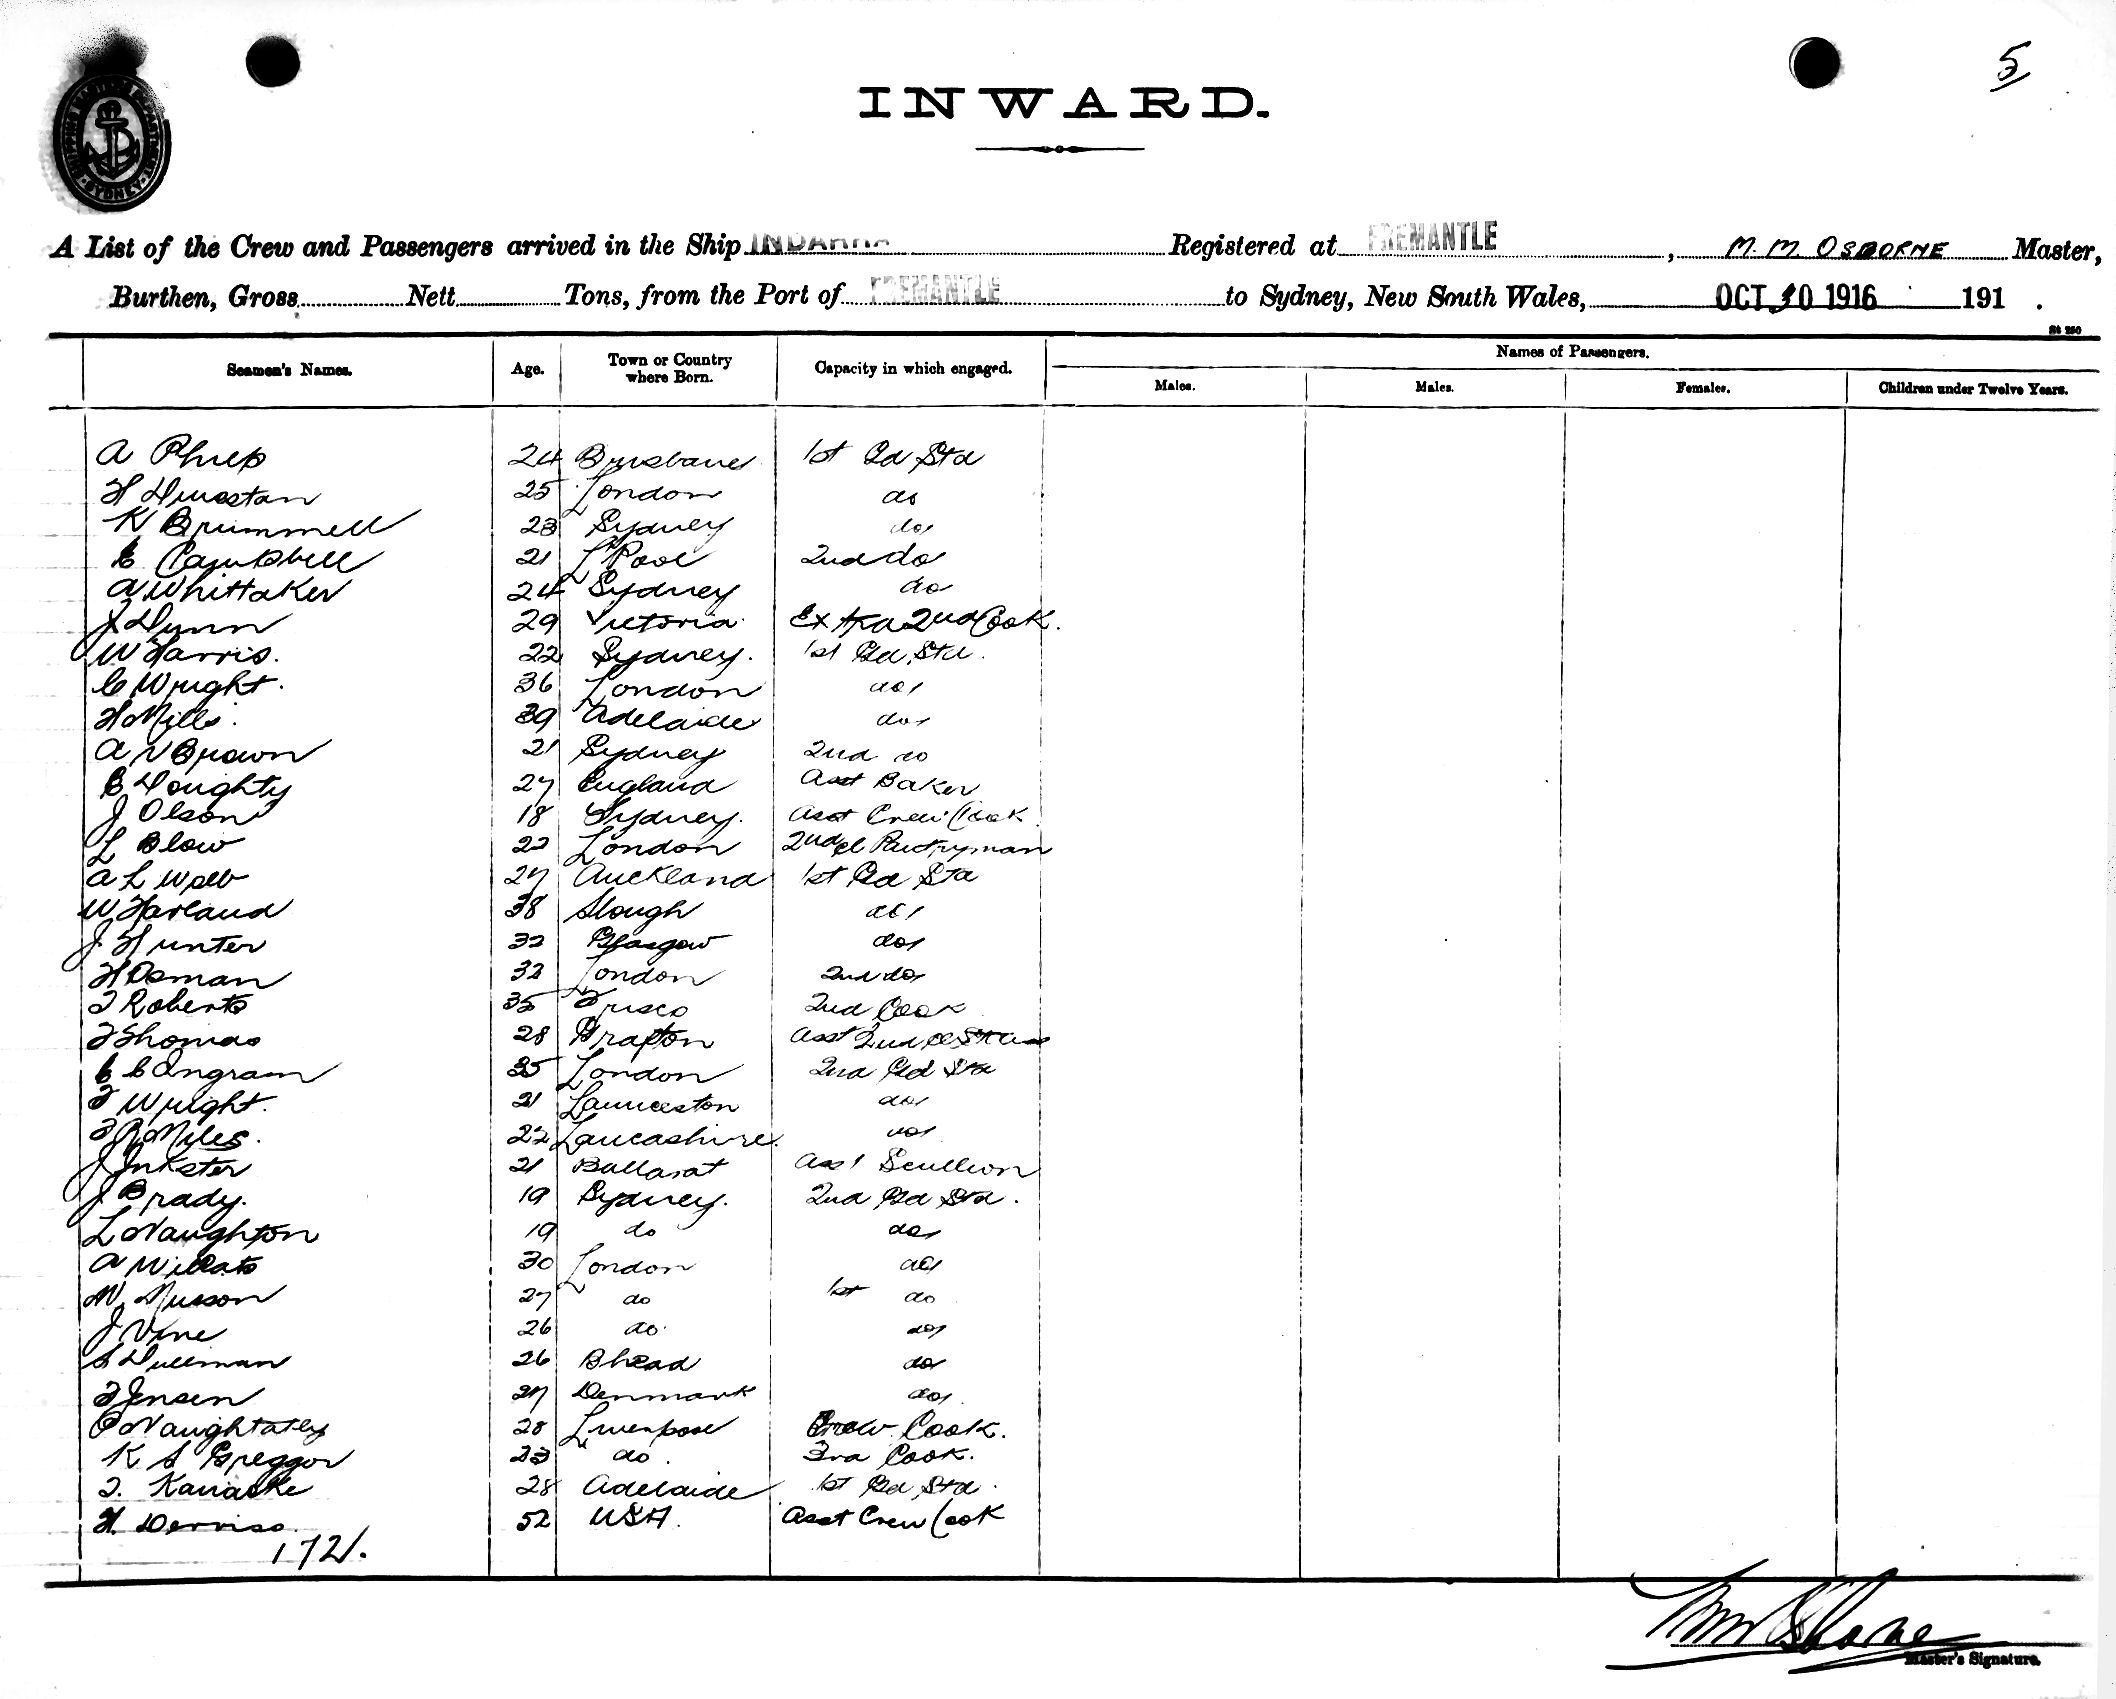 5
INWARD.
A List of the Crew and Passengers arrived in the Ship INDARRA Registered at FREMANTLE, M. M. OSBORNE Master,
Burthen, Gross Nett Tons, from the Port of FREMANTLE to Sydney, New South Wales, OCT 30 1916 191 .
St 250
Seamen's Names. Age. Town or Country where Born. Capacity in which engaged. Names of Passengers.
Males. Males. Females. Children under Twelve Years.
A 24 Brisbane 1st Gd Std
H Dunstan 25 London do
K Brummell 23 Sydney do
E Campbell 21 L'Pool 2nd do
A Whittaker 24 Sydney do
J Dunn 29 Victoria Extra 2nd Cook.
W Harris. 22 Sydney. 1st Gd Std.
C Wright. 36 London do
H Mills. 39 Adelaide do
A V Brown 21 Sydney 2nd do
E Doughty 27 England Asst Baker
J Olson 18 Sydney. Asst Crew Cook
L Blow 22 London 2nd Cl Pantryman
A L Webb 27 Auckland 1st Gd Std
W Harland 38 Slough do
J Hunter 32 Glasgow do
H Osman 32 London 2nd do
T Roberts 35 Frisco 2nd Cook
T Thomas 28 Grafton Asst 2nd Cl
C C Ingram 35 London 2nd Gd Std
F Wright. 21 Launceston do
F R Miles. 22 Lancashire. do
J Inkster 21 Ballarat Asst Scullion
J Brady. 19 Sydney. 2nd Gd Std.
L Naughton 19 do do
A Willats 30 London do
W. Musson 27 do 1st do
J Vine 26 do do
S Dullman 26 Bhead do
F Jensen 27 Denmark do
C 28 Liverpool Crew Cook.
K S Greggor 23 do. 3rd Cook.
T. 28 Adelaide 1st Gd Std.
H. 52 USA. Asst Crew Cook
172.
M M Osborne
Master's Signature.